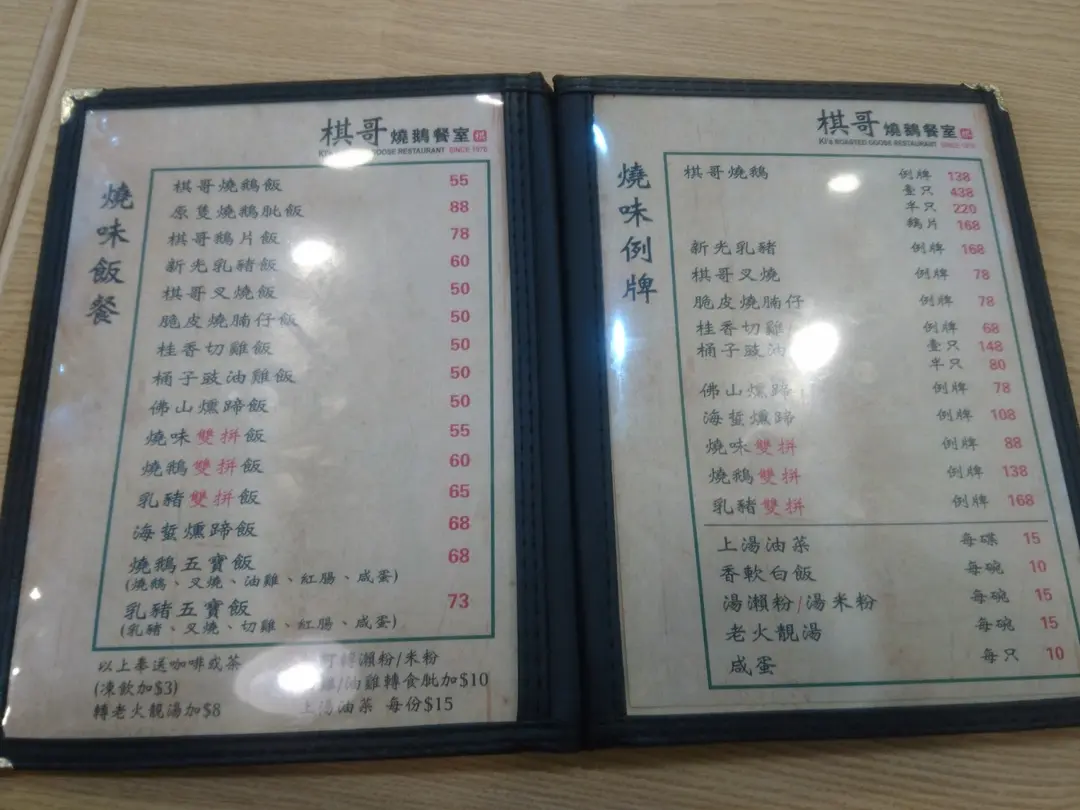 棋哥燒鵝餐室
RESTAURANT SINCE 1978
燒味飯餐
棋哥燒鵝飯 55
原隻燒鵝肶飯 88
棋哥鵝片飯 78
新光乳豬飯 60
棋哥叉燒飯 50
脆皮燒腩仔飯 50
桂香切雞飯 50
桶子豉油雞飯 50
佛山燻蹄飯 50
燒味雙拼飯 55
燒鵝雙拼飯 60
乳豬雙拼飯 65
海蜇燻蹄飯 68
燒鵝五寶飯 68
(燒鵝、叉燒、油雞、紅腸、咸蛋)
乳豬五寶飯 73
(乳豬、叉燒、切雞、紅腸、咸蛋)
以上奉送咖啡或茶
(凍飲加$3)
轉老火靚湯加$8
瀨粉/米粉
/油雞轉食肶加$10
上湯油菜 每份$15
棋哥燒鵝餐室
Ki's ROASTED GOOSE RESTAURANT SINCE 1978
燒味例牌
棋哥燒鵝 例牌 138
壹只 438
半只 220
鵝片 168
新光乳豬 例牌 168
棋哥叉燒 例牌 78
脆皮燒腩仔 例牌 78
桂香切雞 例牌 68
桶子豉油 壹只 148
半只 80
佛山燻蹄 例牌 78
海蜇燻蹄 例牌 108
燒味雙拼 例牌 88
燒鵝雙拼 例牌 138
乳豬雙拼 例牌 168
上湯油菜 每碟 15
香軟白飯 每碗 10
湯瀨粉/湯米粉 每碗 15
老火靚湯 每碗 15
咸蛋 每只 10